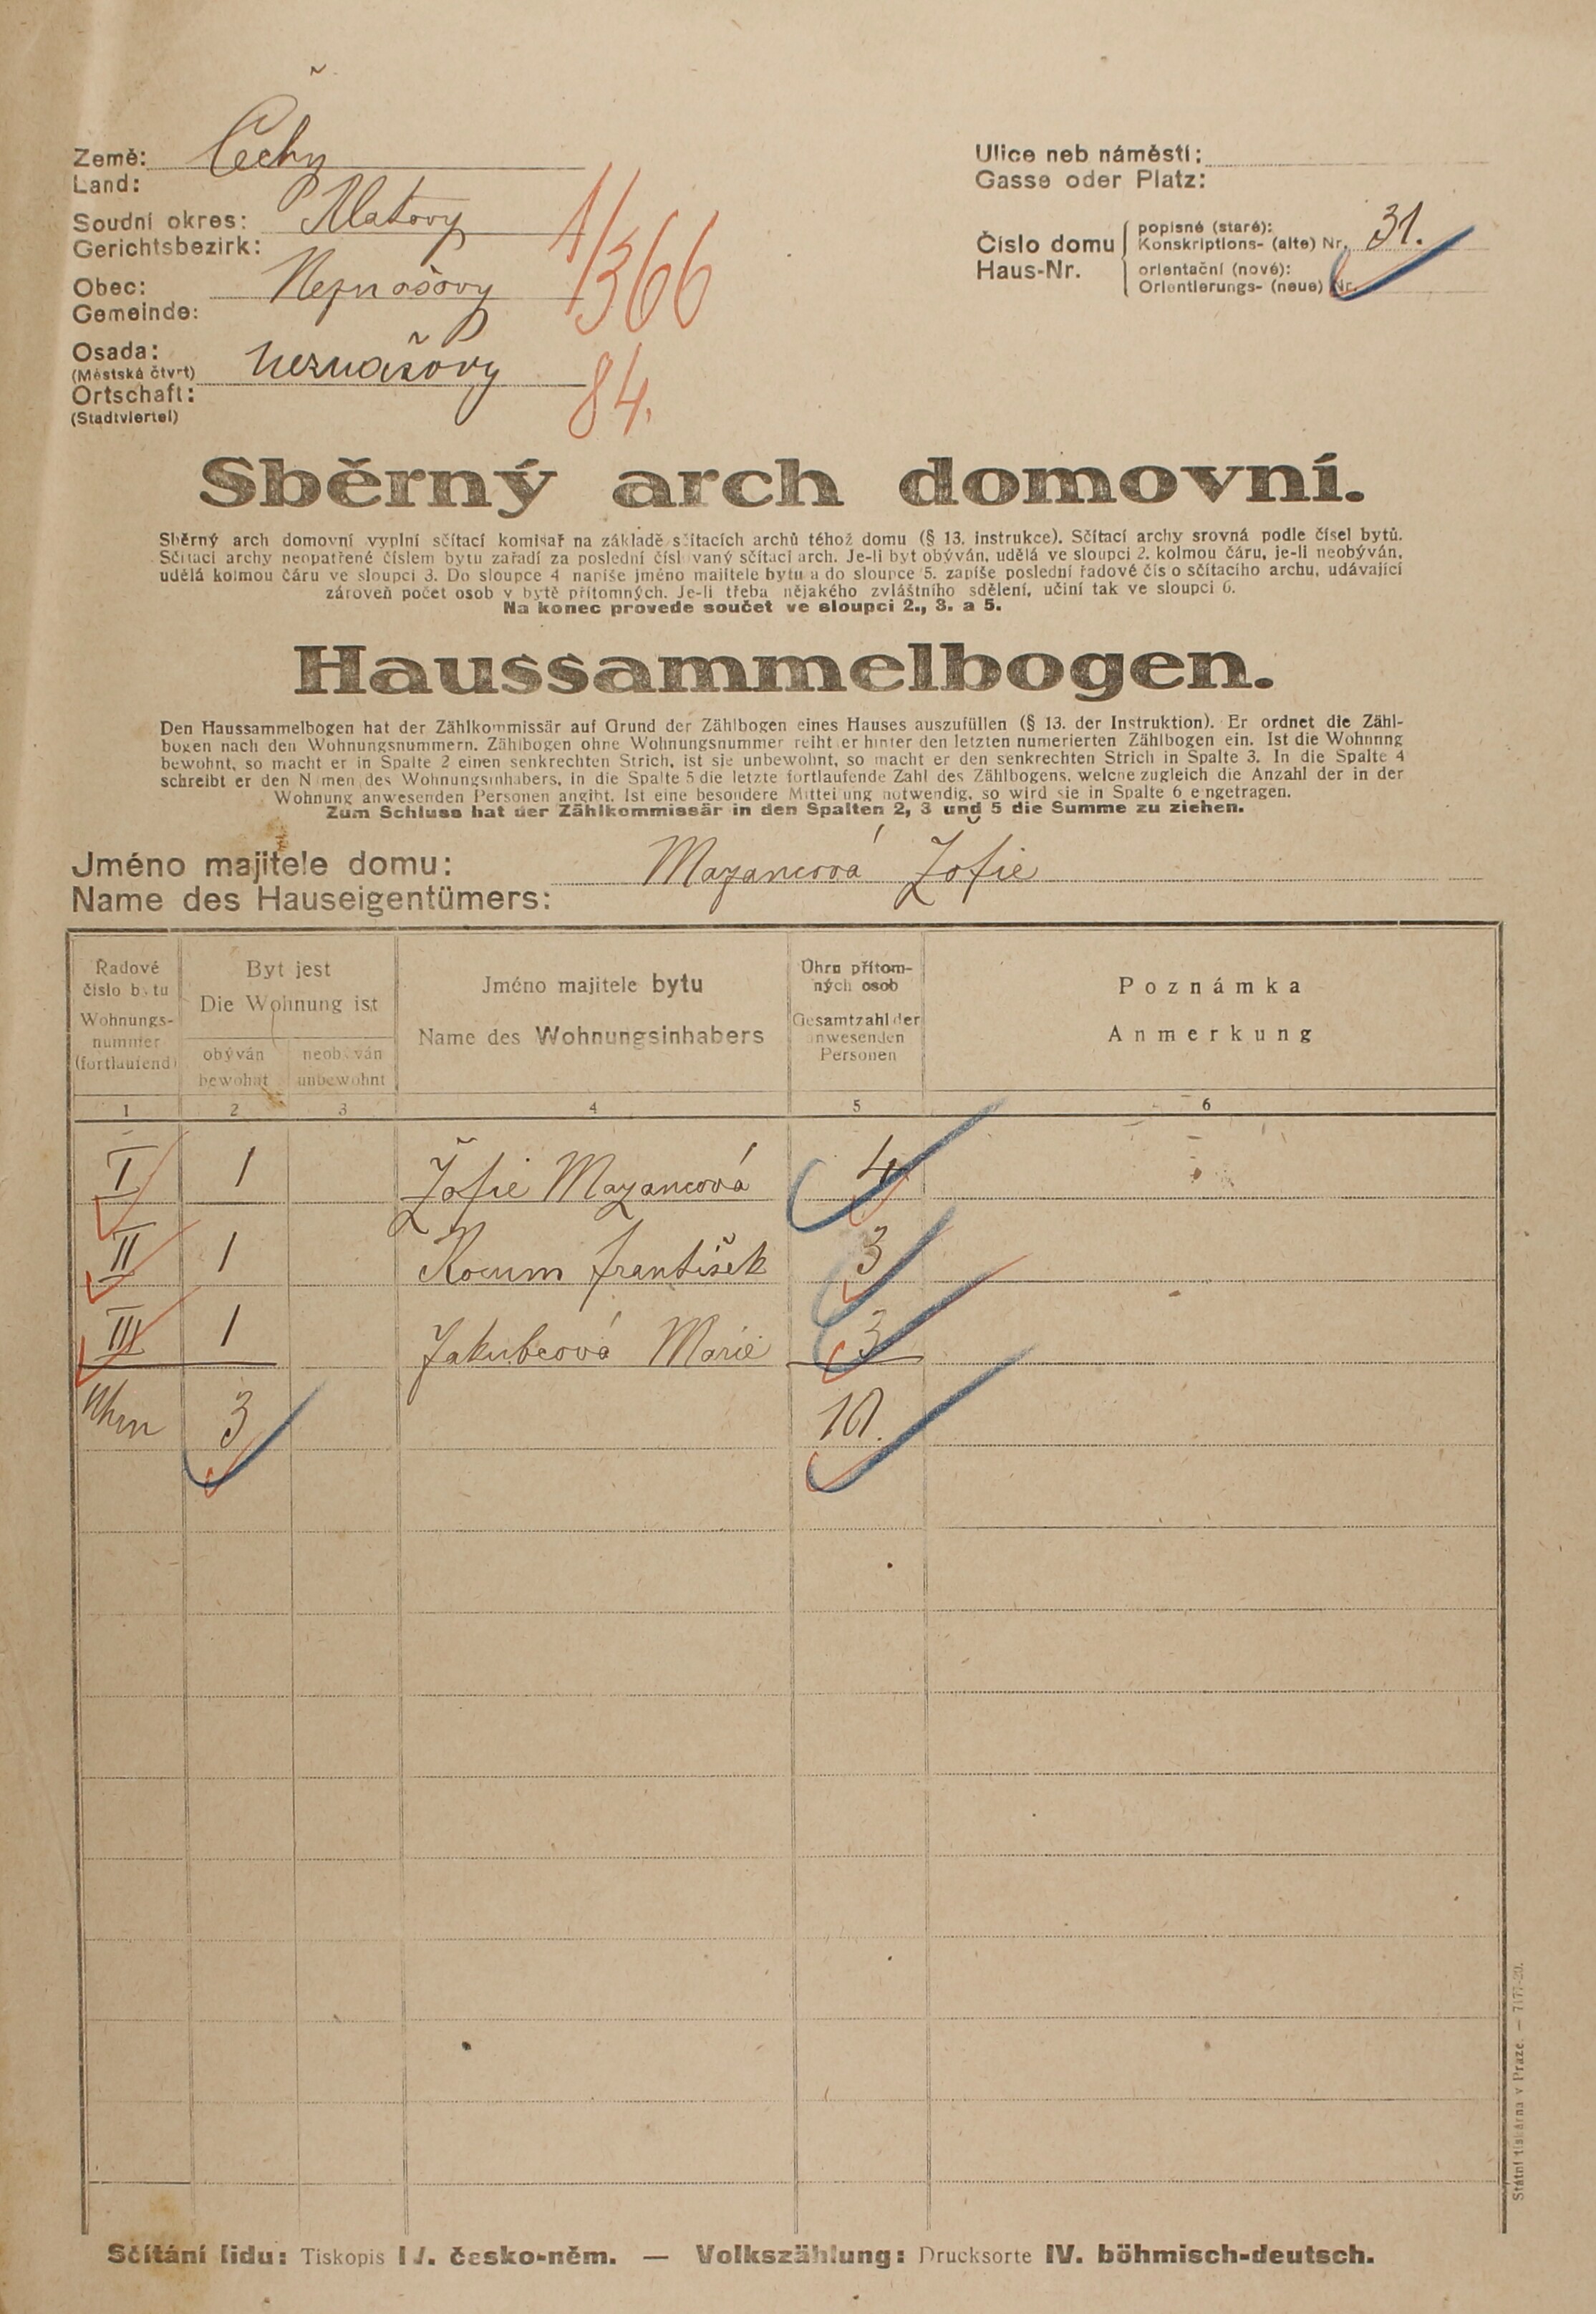 Země: Čechy
Land:
Soudní okres: Klatovy
Gerichtsbezirk:
Obec: Neznašovy
Gemeinde:
Osada: Neznašovy
(Městská čtvrt)
Ortschaft:
(Stadtviertel)
1/366
84.
Ulice neb náměstí:
Gasse oder Platz:
Číslo domu popisné (staré): 31.
Konskriptions- (alte) Nr.
Haus-Nr. orientační (nové):
Orientierungs- (neue) Nr.
Sběrný arch domovní.
Sběrný arch domovní vyplní sčítací komisař na základě sčítacích archů téhož domu (§ 13. instrukce). Sčítací archy srovná podle čísel bytů.
Sčítací archy neopatřené číslem bytu zařadí za poslední číslovaný sčítací arch. Je-li byt obýván, udělá ve sloupci 2. kolmou čáru, je-li neobýván,
udělá kolmou čáru ve sloupci 3. Do sloupce 4 napíše jméno majitele bytu a do sloupce 5. zapíše poslední řadové číslo sčítacího archu, udávající
zároveň počet osob v bytě přítomných. Je-li třeba nějakého zvláštního sdělení, učiní tak ve sloupci 6.
Na konec provede součet ve sloupci 2., 3. a 5.
Haussammelbogen.
Den Haussammelbogen hat der Zählkommissär auf Grund der Zählbogen eines Hauses auszufüllen (§ 13. der Instruktion). Er ordnet die Zähl-
bogen nach den Wohnungsnummern. Zählbogen ohne Wohnungsnummer reiht er hinter den letzten numerierten Zählbogen ein. Ist die Wohnnng
bewohnt, so macht er in Spalte 2 einen senkrechten Strich, ist sie unbewohnt, so macht er den senkrechten Strich in Spalte 3. In die Spalte 4
schreibt er den Namen des Wohnungsinhabers, in die Spalte 5 die letzte fortlaufende Zahl des Zählbogens, welche zugleich die Anzahl der in der
Wohnung anwesenden Personen angibt. Ist eine besondere Mitteilung notwendig, so wird sie in Spalte 6 eingetragen.
Zum Schluss hat der Zählkommissär in den Spalten 2, 3 und 5 die Summe zu ziehen.
Jméno majitele domu: Mazancová Žofie
Name des Hauseigentümers:
Řadové číslo bytu
Wohnungs-nummer (fortlaufend)
Byt jest
Die Wohnung ist
obýván
bewohnt
neobýván
unbewohnt
Jméno majitele bytu
Name des Wohnungsinhabers
Úhrn přítom-ných osob
Gesamtzahl der anwesenden Personen
Poznámka
Anmerkung
1 2 3 4 5 6
I 1 Žofie Mazancová 4
II 1 Kocum František 3
III 1 Jakubcová Marie 3
Uhrn 3 10.
Státní tiskárna v Praze. — 7177-20.
Sčítání lidu: Tiskopis IV. česko-něm. — Volkszählung: Drucksorte IV. böhmisch-deutsch.